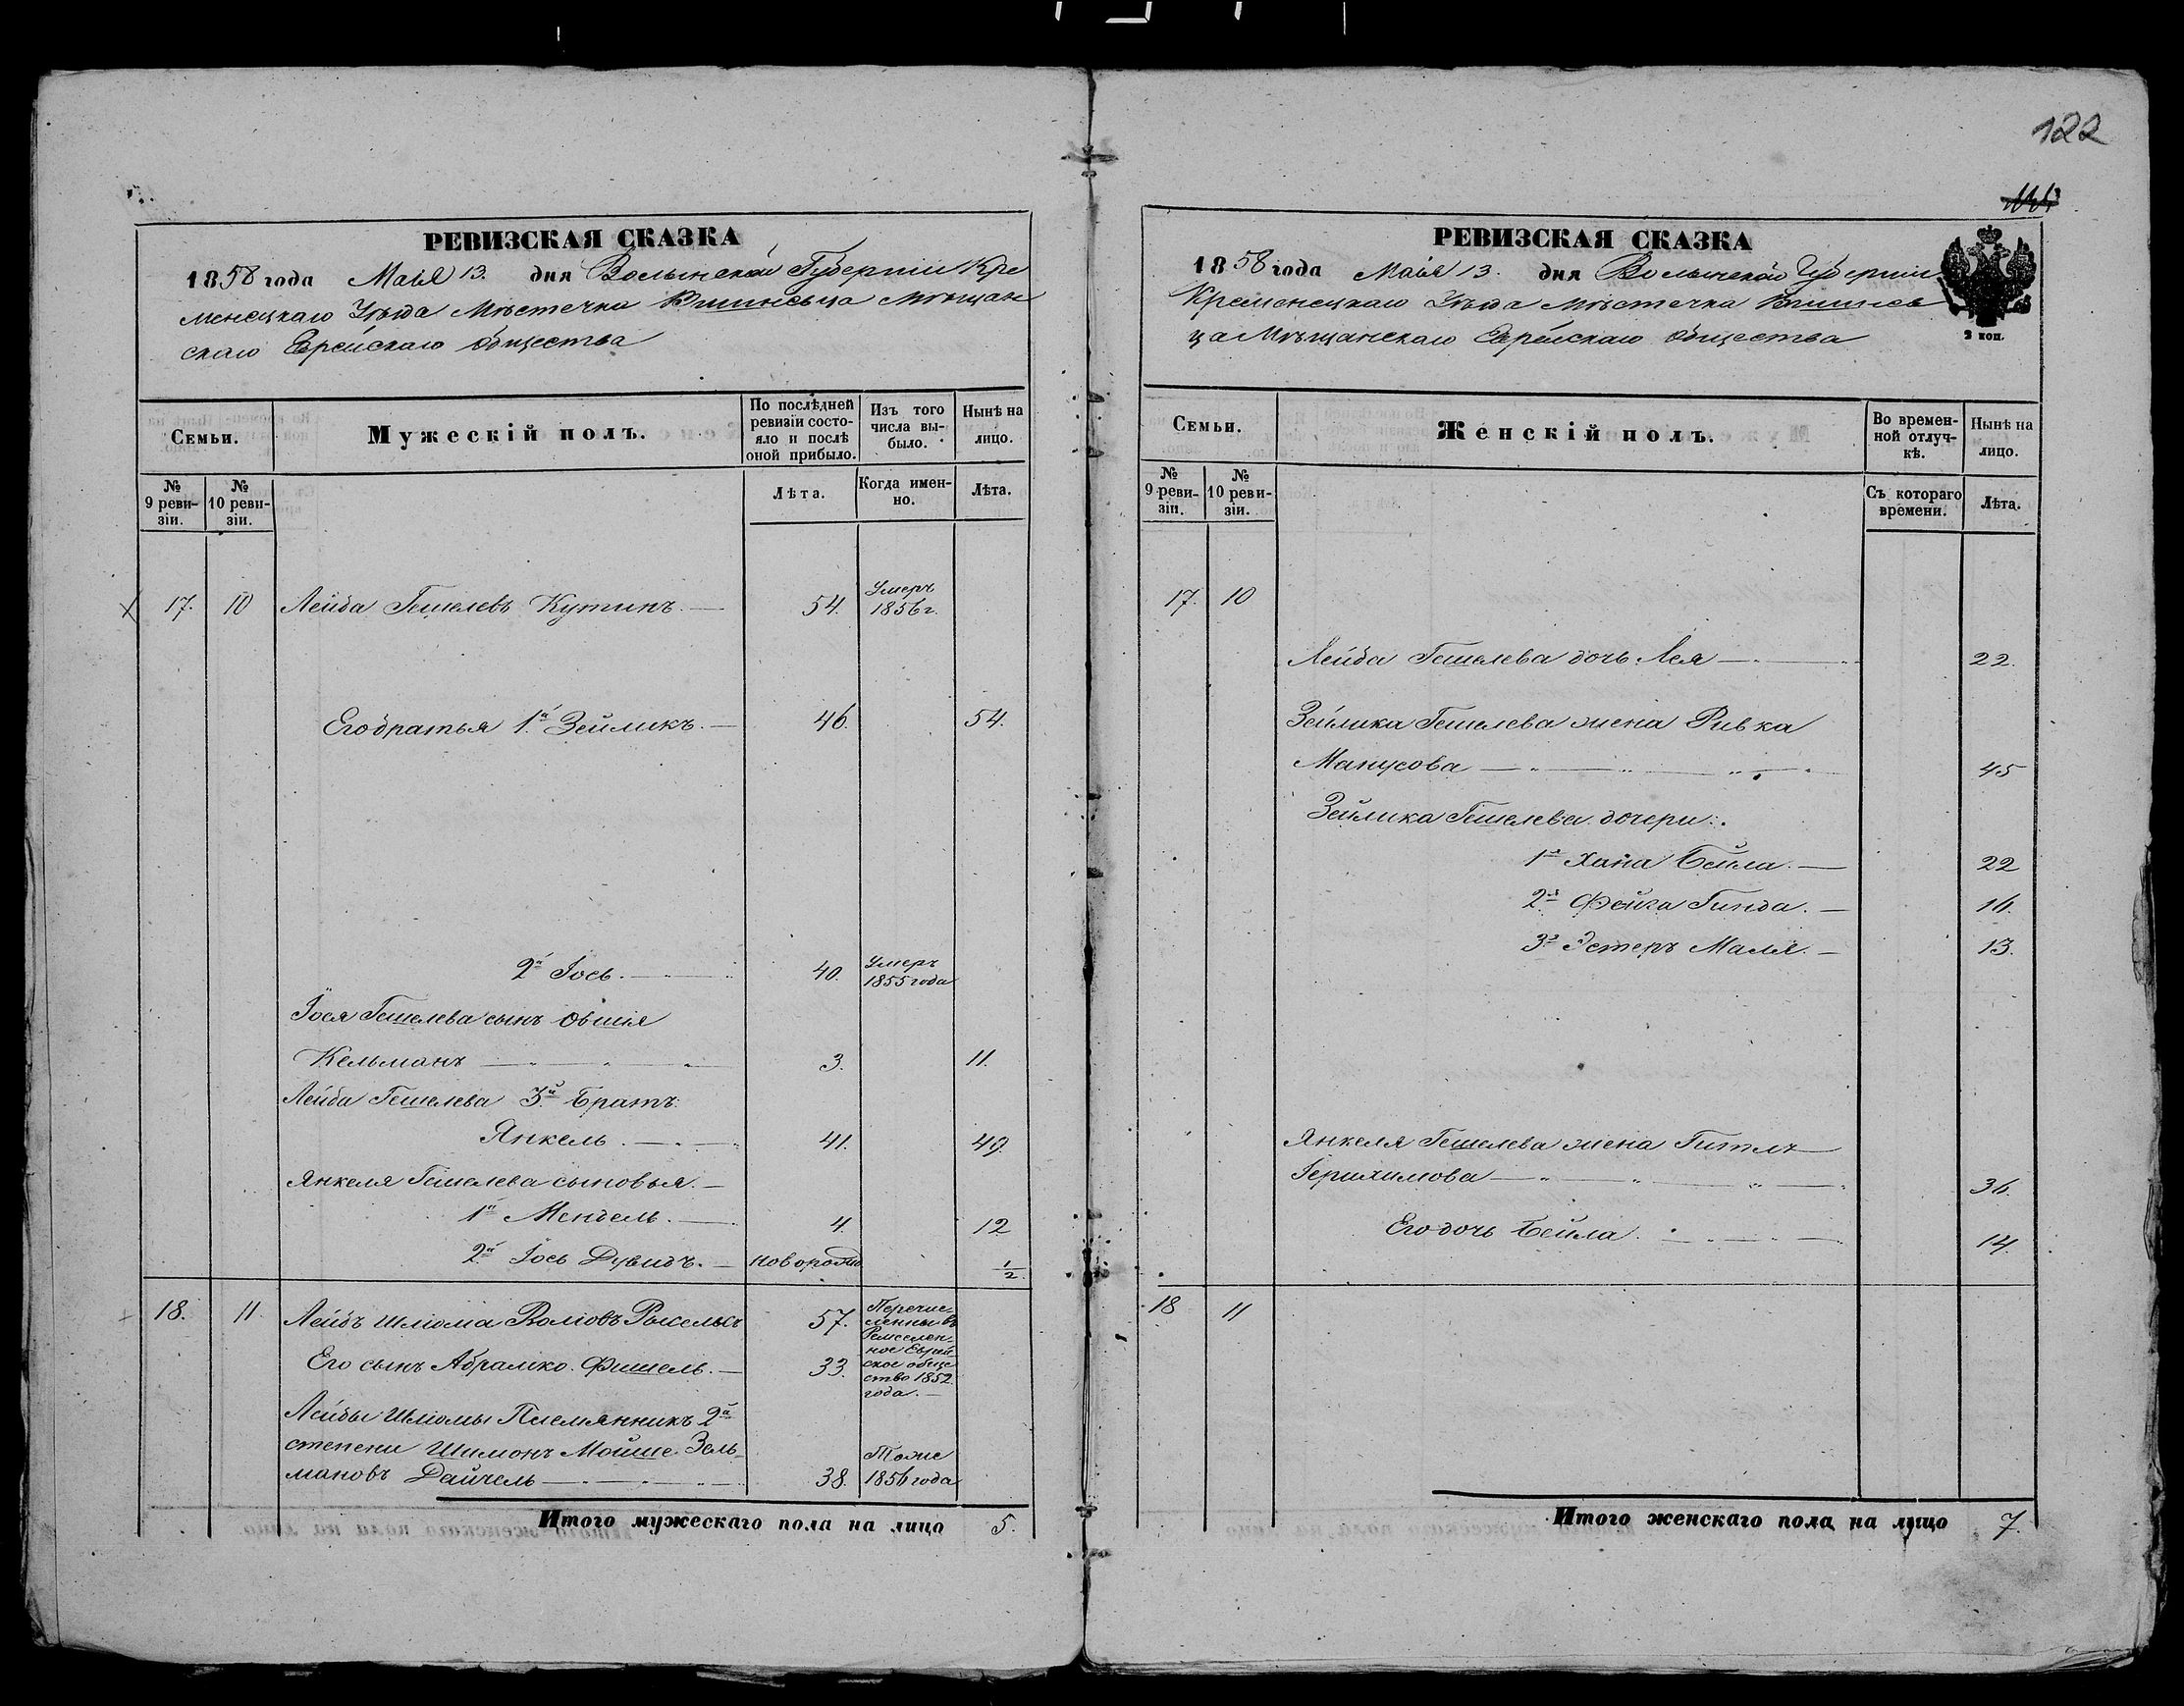 122
РЕВИЗСКАЯ СКАЗКА
1858 года Маія 13. дня Волынской Губерніи Кре
менецкаго Уѣзда Мѣстечка Вишневца Мѣщан
скаго Еврейскаго Общества
Семьи.
Мужескій полъ.
По послѣдней ревизіи состояло и послѣ оной прибыло.
Изъ того числа выбыло.
Нынѣ на лицо.
№ 9 ревизіи.
№ 10 ревизіи.
Лѣта.
Когда именно.
Лѣта.
17. 10 Лейба Гешелевъ Кутинъ. — 54. Умеръ 1856 г.
Его братья 1й Зейликъ. — 46. 54.
2й Іось. — 40. Умеръ 1855 года
Іося Гешелева сынъ Овшія
Кельманъ — 3. 11.
Лейба Гешелева 3й братъ
Янкель. — 41. 49.
Янкеля Гешелева сыновья. —
1й Мендель. — 4. 12
2й Іось Дувидъ. — новорожд 1/2.
18. 11 Лейбъ Шлиома
57. Перечис-
ленны въ
Ремеслен-
ное Еврей-
ское обще
ство 1852
года. —
Его сынъ Абрамко Фишель. — 33.
Лейбы Шлиомы Племянникъ 2й
степени Шимонъ Мойше Зель-
мановъ Дайчель — 38. Тоже 1856 года
Итого мужескаго пола на лицо 5.
РЕВИЗСКАЯ СКАЗКА
1858 года Маія 13. дня Волынской Губерніи
Кременецкаго Уѣзда Мѣстечка Вишнев
ца Мѣщанскаго Еврейскаго Общества
2 коп.
Семьи.
Женскій полъ.
Во временной отлучкѣ.
Нынѣ на лицо.
№ 9 ревизіи.
№ 10 ревизіи.
Съ котораго времени.
Лѣта.
17. 10
Лейба Гешелева дочь Лея — 22.
Зейлика Гешелева жена Ривка
Манусова — 45
Зейлика Гешелева дочери:
1я Хана Бейла. — 22
2я Фейга Гинда. — 16.
3я Эстеръ Маля. — 13.
Янкеля Гешелева жена Гитля
36.
Его дочь Бейла. — 14.
18 11
Итого женскаго пола на лицо 7.